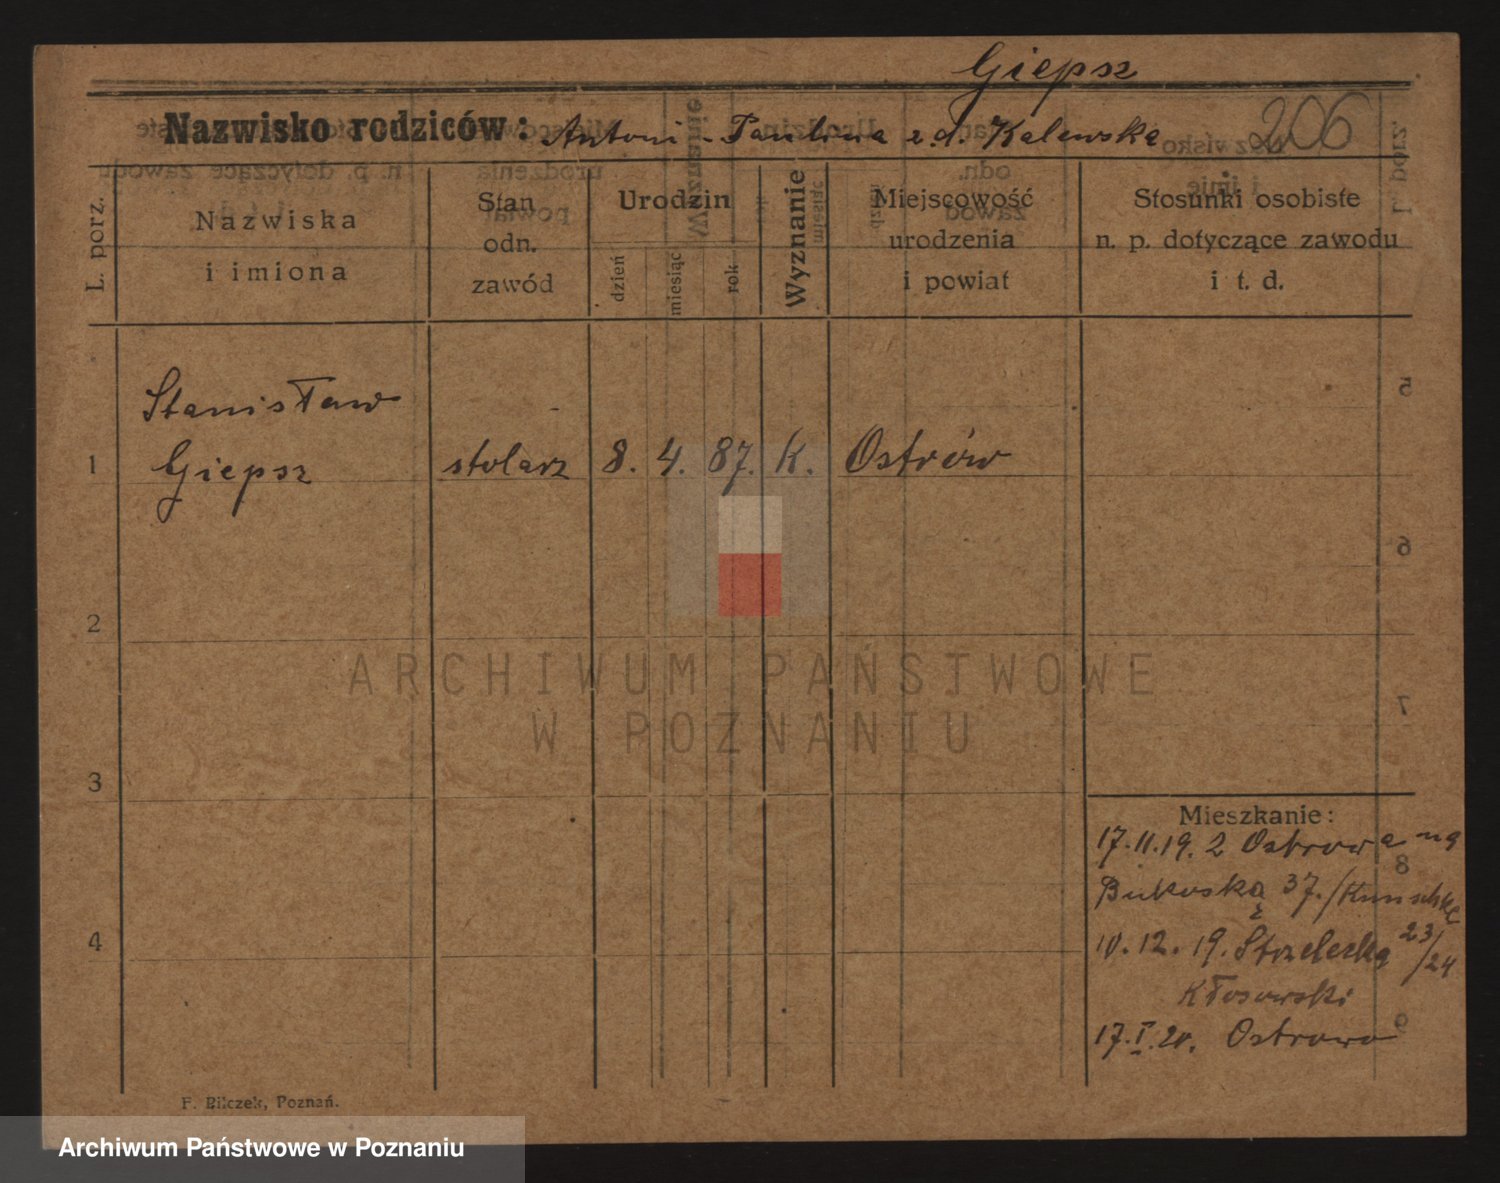 Giepsz
Nazwisko rodziców: Antoni - Paulina z.d. Kalewska
206
L. porz.
Nazwiska
i imiona
Stan
odn.
zawód
Urodzin
dzień
miesiąc
rok
Wyznanie
Miejscowość
urodzenia
i powiat
Stosunki osobiste
n. p. dotyczące zawodu
i t. d.
Stanisław
1 Giepsz stolarz 8. 4. 87. k. Ostrów
2
3
4
ARCHIWUM PAŃSTWOWE
W POZNANIU
Mieszkanie:
17.11.19. z Ostrowa na
Bukoska 37. /Kunschke
10. 12. 19. Strzelecka 23/24
Kłosowski
17.I.20. Ostrowo
F. Pilczek, Poznań.
Archiwum Państwowe w Poznaniu